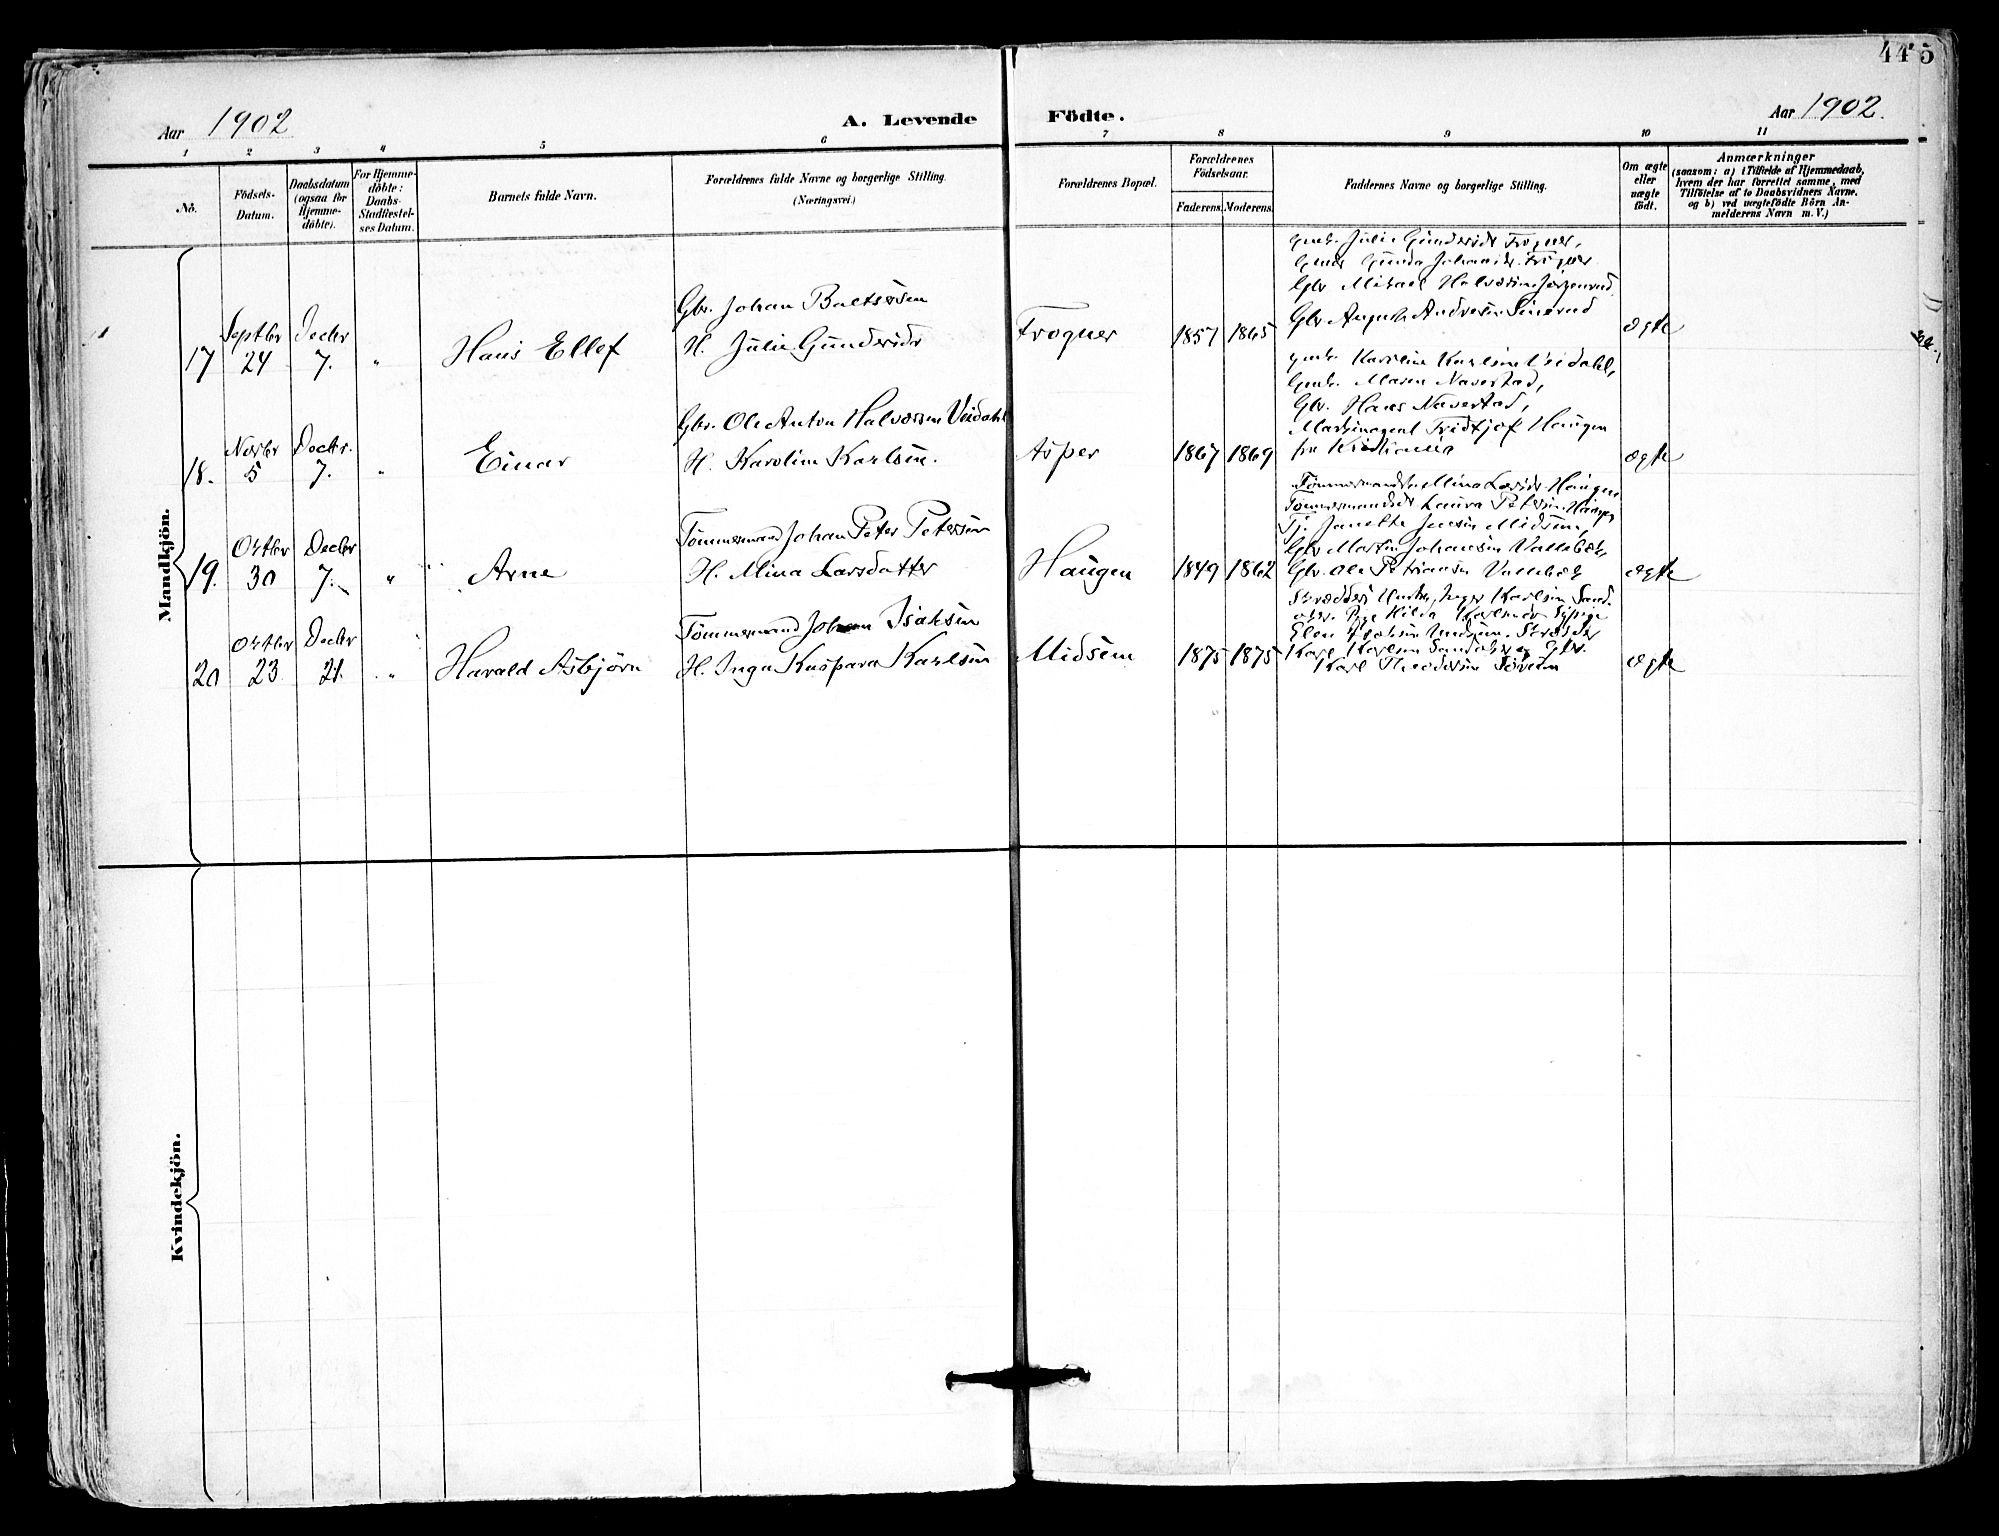 445
Aar 1902 A. Levende Födte. Aar 1902.
1 2 3 4 5 6 7 8 9 10 11
No.
Födsels-
Datum.
Daabsdatum
(ogsaa for
Hjemme-
döbte).
For Hjemme-
döbte:
Daabs-
Stadfæstel-
ses Datum.
Barnets fulde Navn.
Forældrenes fulde Navne og borgerlige Stilling.
(Næringsvei.)
Forældrenes Bopæl.
Forældrenes
Födselsaar.
Faderens. Moderens.
Faddernes Navne og borgerlige Stilling.
Om ægte
eller
uægte
födt.
Anmærkninger
(saasom: a) i Tilfælde af Hjemmedaab,
hvem der har forrettet samme, med
Tilföielse af to Daabsvidners Navne.
og b) ved uægtefödte Börn An-
melderens Navn m. V.)
Mandkjön.
17 Septbr 24 Decbr 7. " Hans Ellef
Gbr. Johan Baltsersen
H. Julie Gundersdr
Frogner 1857 1865
Gmk. Julie Gundersdr Frogner,
Gunda Johansdr. Frogner
Gbr Mikael Halvorsen
Gbr August Andresen
ægte
18. Novbr 5 Decbr. 7. " Einar
Gbr. Ole Anton Halvorsen Veidahl
H. Karoline Karlsen.
Asper 1867 1869
Gmk. Karoline Karlsen Veidahl,
Gmk. Maren Naverstad,
Gbr. Hans Naverstad,
Maskinagent Fridtjof Haugen
fra Kristiania
ægte
19. Oktbr 30 Decbr 7. " Arne
Tømmermand Johan Peter Petersen
H. Mina Larsdatter
Haugen 1849 1862
Mina Larsdr. Haugen
Laura Petersen Haugen
Tj. Janette Jensen Midsem,
Gbr Martin Johansen Vallebæk
Gbr. Ole Petriansen Vallebæk
ægte
20 Oktbr 23 Decbr 21. " Harald Asbjörn
Tømmermand Johan Isaksen
H. Inga Kaspara Karlsen
Midsem 1875 1875
Inger Karlsen Sand-
aker. Pige Hilda
Elen Skrædder
Karl Karlsen Sandaker og Gbr.
Karl Theodorsen
ægte
Kvindekjön.